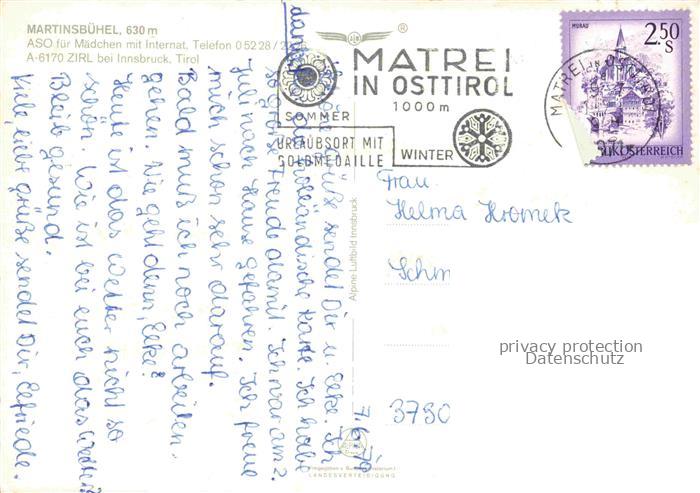 MARTINSBÜHEL, 630 m
ASO für Mädchen mit Internat, Telefon 0 52 28 / 
A-6170 ZIRL bei Innsbruck, Tirol
®
MATREI
IN OSTTIROL
1000 m
SOMMER
URLAUBSORT MIT
GOLDMEDAILLE
WINTER
MURAU
2.50
S
REPUBLIK ÖSTERREICH
MATREI IN OSTTIROL
Frau
Helma Kromek
Schm
3790
privacy protection
Datenschutz
Alpine Luftbild Innsbruck
LANDESVERTEIDIGUNG
7/6 76
Grüße sendet Dir u. Elke. Ich
danke holländische Karte. Ich habe
so große Freude damit. Ich war am 2.
Juli nach Hause gefahren. Ich freue
mich schon sehr darauf.
Bald muß ich noch arbeiten
gehen. Wie geht denn, Elke?
Heute ist das Wetter nicht so
schön. Wie ist bei euch das Wetter?
Bleib gesund.
Viele liebe Grüße sendet Dir, Elfriede.